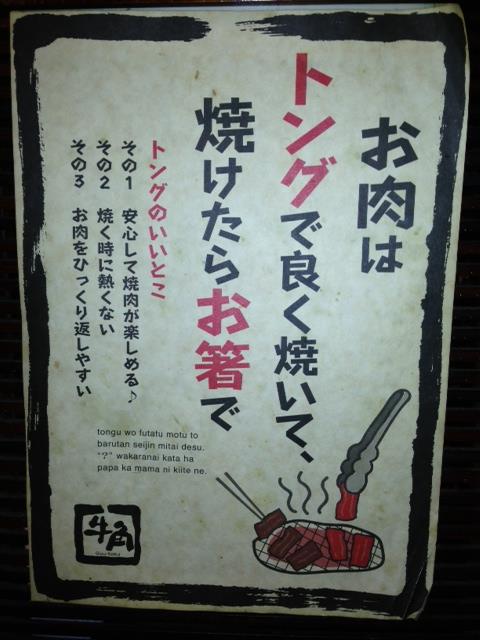 お肉は
トングで良く焼いて、
焼けたらお箸で
トングのいいとこ
その1 安心して焼肉が楽しめる♪
その2 焼く時に熱くない
その3 お肉をひっくり返しやすい
tongu wo futatu motu to
barutan seijin mitai desu.
"?" wakaranai kata ha
papa ka mama ni kiite ne.
牛角